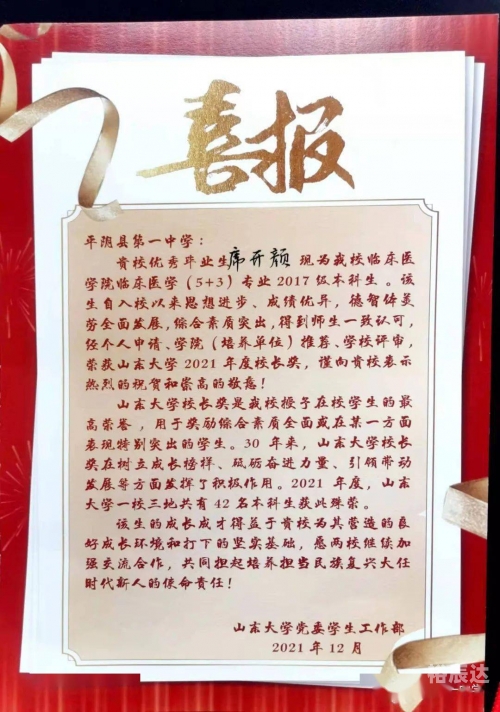 喜报
平阴县第一中学：
贵校优秀毕业生席开颜 现为我校临床医
学院临床医学（5+3）专业 2017 级本科生。该
生自入校以来思想进步、成绩优异，德智体美
劳全面发展，综合素质突出，得到师生一致认可，
经个人申请、学院（培养单位）推荐、学校评审，
荣获山东大学 2021 年度校长奖，谨向贵校表示
热烈的祝贺和崇高的敬意！
山东大学校长奖是我校授予在校学生的最
高荣誉，用于奖励综合素质全面或在某一方面
表现特别突出的学生。30 年来，山东大学校长
奖在树立成长榜样、砥砺奋进力量、引领带动
发展等方面发挥了积极作用。2021 年度，山东
大学一校三地共有 42 名本科生获此殊荣。
该生的成长成才得益于贵校为其营造的良
好成长环境和打下的坚实基础，愿两校继续加
强交流合作，共同担起培养担当民族复兴大任
时代新人的使命责任！
山东大学党委学生工作部
2021 年 12 月